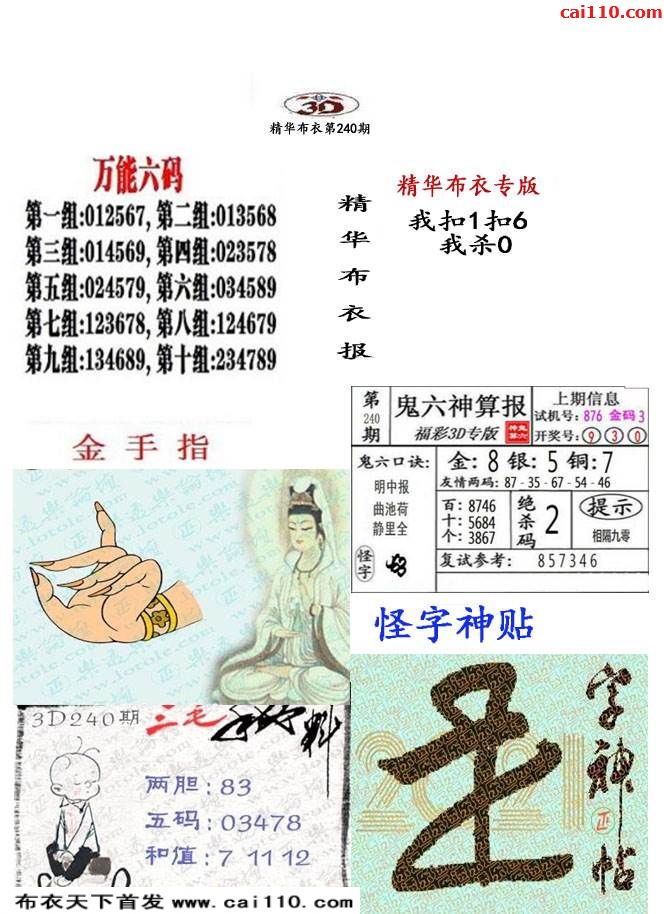 cai110.com
3D
精华布衣第240期
万能六码
第一组:012567, 第二组:013568
第三组:014569, 第四组:023578
第五组:024579, 第六组:034589
第七组:123678, 第八组:124679
第九组:134689, 第十组:234789
精华布衣报
精华布衣专版
我扣1扣6
我杀0
金手指
第240期
鬼六神算报
福彩3D专版
上期信息
试机号: 876 金码 3
开奖号: 9 3 0
鬼六口诀:
明中报
曲池荷
静里全
怪字
金: 8 银: 5 铜: 7
友情两码: 87 - 35 - 67 - 54 - 46
百: 8746
十: 5684
个: 3867
绝杀码 2
提示
相隔九零
复试参考: 857346
怪字神贴
字神帖
正
2021
3D240期 三毛
料
两胆: 83
五码: 03478
和值: 7 11 12
布衣天下首发 www.cai110.com